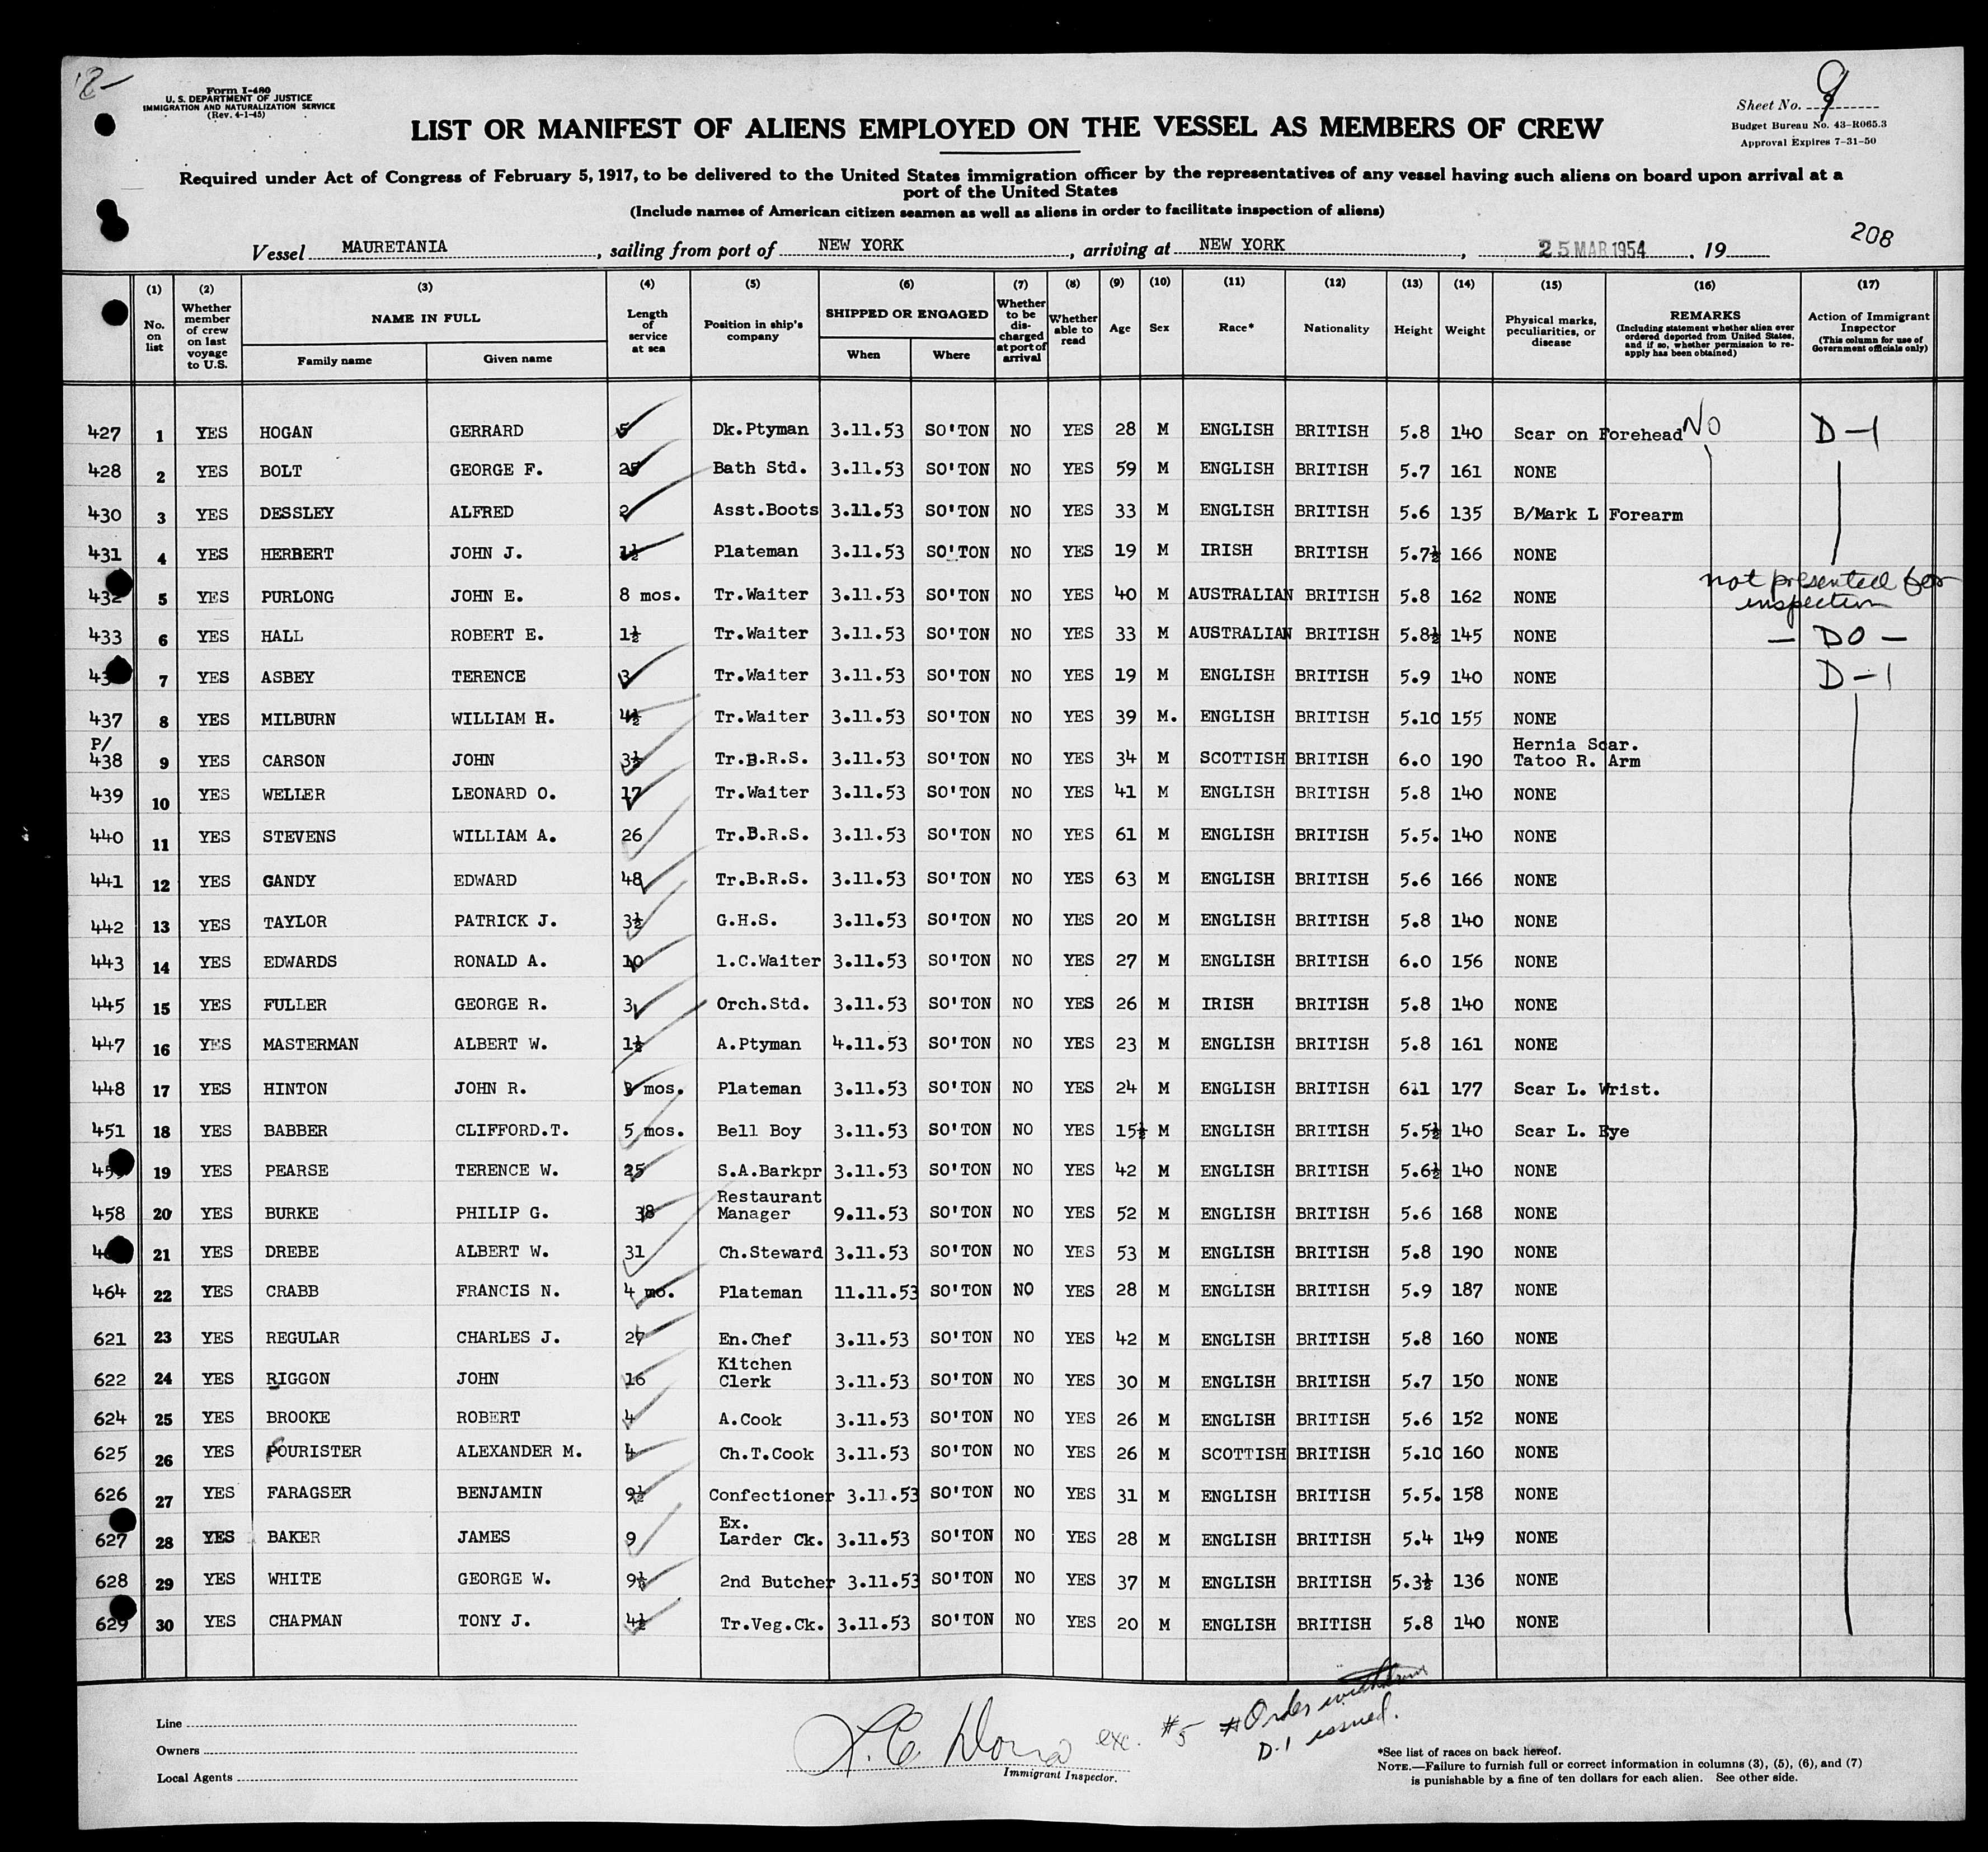 Form I-480
U. S. DEPARTMENT OF JUSTICE
IMMIGRATION AND NATURALIZATION SERVICE
(Rev. 4-1-45)
Sheet No. 9
Budget Bureau No. 43-R065.3
Approval Expires 7-31-50
LIST OR MANIFEST OF ALIENS EMPLOYED ON THE VESSEL AS MEMBERS OF CREW
Required under Act of Congress of February 5, 1917, to be delivered to the United States immigration officer by the representatives of any vessel having such aliens on board upon arrival at a
port of the United States
(Include names of American citizen seamen as well as aliens in order to facilitate inspection of aliens)
208
Vessel MAURETANIA, sailing from port of NEW YORK, arriving at NEW YORK, 25 MAR 1954, 19
(1) No. on list (2) Whether member of crew on last voyage to U.S. (3) NAME IN FULL Family name Given name (4) Length of service at sea (5) Position in ship's company (6) SHIPPED OR ENGAGED When Where (7) Whether to be discharged at port of arrival (8) Whether able to read (9) Age (10) Sex (11) Race* (12) Nationality (13) Height (14) Weight (15) Physical marks, peculiarities, or disease (16) REMARKS (Including statement whether alien ever ordered deported from United States, and if so, whether permission to re-apply has been obtained) (17) Action of Immigrant Inspector (This column for use of Government officials only)
427 1 YES HOGAN GERRARD 5 Dk.Ptyman 3.11.53 SO'TON NO YES 28 M ENGLISH BRITISH 5.8 140 Scar on Forehead NO D-1
428 2 YES BOLT GEORGE F. 25 Bath Std. 3.11.53 SO'TON NO YES 59 M ENGLISH BRITISH 5.7 161 NONE
430 3 YES DESSLEY ALFRED 2 Asst.Boots 3.11.53 SO'TON NO YES 33 M ENGLISH BRITISH 5.6 135 B/Mark L Forearm
431 4 YES HERBERT JOHN J. 1½ Plateman 3.11.53 SO'TON NO YES 19 M IRISH BRITISH 5.7½ 166 NONE
432 5 YES PURLONG JOHN E. 8 mos. Tr.Waiter 3.11.53 SO'TON NO YES 40 M AUSTRALIAN BRITISH 5.8 162 NONE not presented for inspection
433 6 YES HALL ROBERT E. 1½ Tr.Waiter 3.11.53 SO'TON NO YES 33 M AUSTRALIAN BRITISH 5.8½ 145 NONE - DO -
7 YES ASBEY TERENCE 3 Tr.Waiter 3.11.53 SO'TON NO YES 19 M ENGLISH BRITISH 5.9 140 NONE D-1
437 8 YES MILBURN WILLIAM H. 4½ Tr.Waiter 3.11.53 SO'TON NO YES 39 M. ENGLISH BRITISH 5.10 155 NONE
P/ 438 9 YES CARSON JOHN 3½ Tr.B.R.S. 3.11.53 SO'TON NO YES 34 M SCOTTISH BRITISH 6.0 190 Hernia Scar. Tatoo R. Arm
439 10 YES WELLER LEONARD O. 17 Tr.Waiter 3.11.53 SO'TON NO YES 41 M ENGLISH BRITISH 5.8 140 NONE
440 11 YES STEVENS WILLIAM A. 26 Tr.B.R.S. 3.11.53 SO'TON NO YES 61 M ENGLISH BRITISH 5.5. 140 NONE
441 12 YES GANDY EDWARD 48 Tr.B.R.S. 3.11.53 SO'TON NO YES 63 M ENGLISH BRITISH 5.6 166 NONE
442 13 YES TAYLOR PATRICK J. 3½ G.H.S. 3.11.53 SO'TON NO YES 20 M ENGLISH BRITISH 5.8 140 NONE
443 14 YES EDWARDS RONALD A. 10 1.C.Waiter 3.11.53 SO'TON NO YES 27 M ENGLISH BRITISH 6.0 156 NONE
445 15 YES FULLER GEORGE R. 3 Orch.Std. 3.11.53 SO'TON NO YES 26 M IRISH BRITISH 5.8 140 NONE
447 16 YES MASTERMAN ALBERT W. 1½ A.Ptyman 4.11.53 SO'TON NO YES 23 M ENGLISH BRITISH 5.8 161 NONE
448 17 YES HINTON JOHN R. mos. Plateman 3.11.53 SO'TON NO YES 24 M ENGLISH BRITISH 6.1 177 Scar L. Wrist.
451 18 YES BABBER CLIFFORD.T. 5 mos. Bell Boy 3.11.53 SO'TON NO YES 15½ M ENGLISH BRITISH 5.5½ 140 Scar L. Eye
19 YES PEARSE TERENCE W. 25 S.A.Barkpr 3.11.53 SO'TON NO YES 42 M ENGLISH BRITISH 5.6½ 140 NONE
458 20 YES BURKE PHILIP G. 38 Restaurant Manager 9.11.53 SO'TON NO YES 52 M ENGLISH BRITISH 5.6 168 NONE
21 YES DREBE ALBERT W. 31 Ch.Steward 3.11.53 SO'TON NO YES 53 M ENGLISH BRITISH 5.8 190 NONE
464 22 YES CRABB FRANCIS N. 4 mo. Plateman 11.11.53 SO'TON NO YES 28 M ENGLISH BRITISH 5.9 187 NONE
621 23 YES REGULAR CHARLES J. 27 En.Chef 3.11.53 SO'TON NO YES 42 M ENGLISH BRITISH 5.8 160 NONE
622 24 YES RIGGON JOHN 16 Kitchen Clerk 3.11.53 SO'TON NO YES 30 M ENGLISH BRITISH 5.7 150 NONE
624 25 YES BROOKE ROBERT 4 A.Cook 3.11.53 SO'TON NO YES 26 M ENGLISH BRITISH 5.6 152 NONE
625 26 YES FOURISTER ALEXANDER M. 4 Ch.T.Cook 3.11.53 SO'TON NO YES 26 M SCOTTISH BRITISH 5.10 160 NONE
626 27 YES FARAGSER BENJAMIN 9½ Confectioner 3.11.53 SO'TON NO YES 31 M ENGLISH BRITISH 5.5. 158 NONE
627 28 YES BAKER JAMES 9 Ex. Larder Ck. 3.11.53 SO'TON NO YES 28 M ENGLISH BRITISH 5.4 149 NONE
628 29 YES WHITE GEORGE W. 9½ 2nd Butcher 3.11.53 SO'TON NO YES 37 M ENGLISH BRITISH 5.3½ 136 NONE
629 30 YES CHAPMAN TONY J. 4½ Tr.Veg.Ck. 3.11.53 SO'TON NO YES 20 M ENGLISH BRITISH 5.8 140 NONE
Line
Owners
Local Agents
exc. #5 #Order
D-1 issued.
Immigrant Inspector.
*See list of races on back hereof.
NOTE.—Failure to furnish full or correct information in columns (3), (5), (6), and (7)
is punishable by a fine of ten dollars for each alien. See other side.